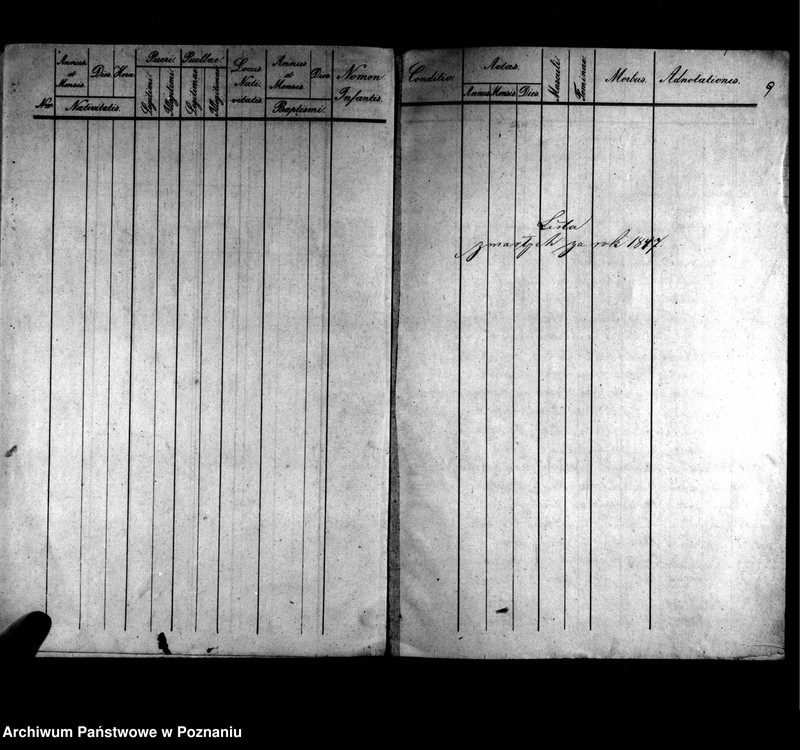 Nro
Annus et Mensis
Dies
Hora
Nativitatis.
Pueri.
Legitimi
Illegitimi
Puellae.
Legitimae
Illegitimae
Locus Nativitatis
Annus et Mensis
Dies
Baptismi.
Nomen Infantis.
Conditio.
Aetas.
Annus
Mensis
Dies
Masculi
Feminae
Morbus.
Adnotationes.
9
Lista
zmarłych za rok 1847.
Archiwum Państwowe w Poznaniu